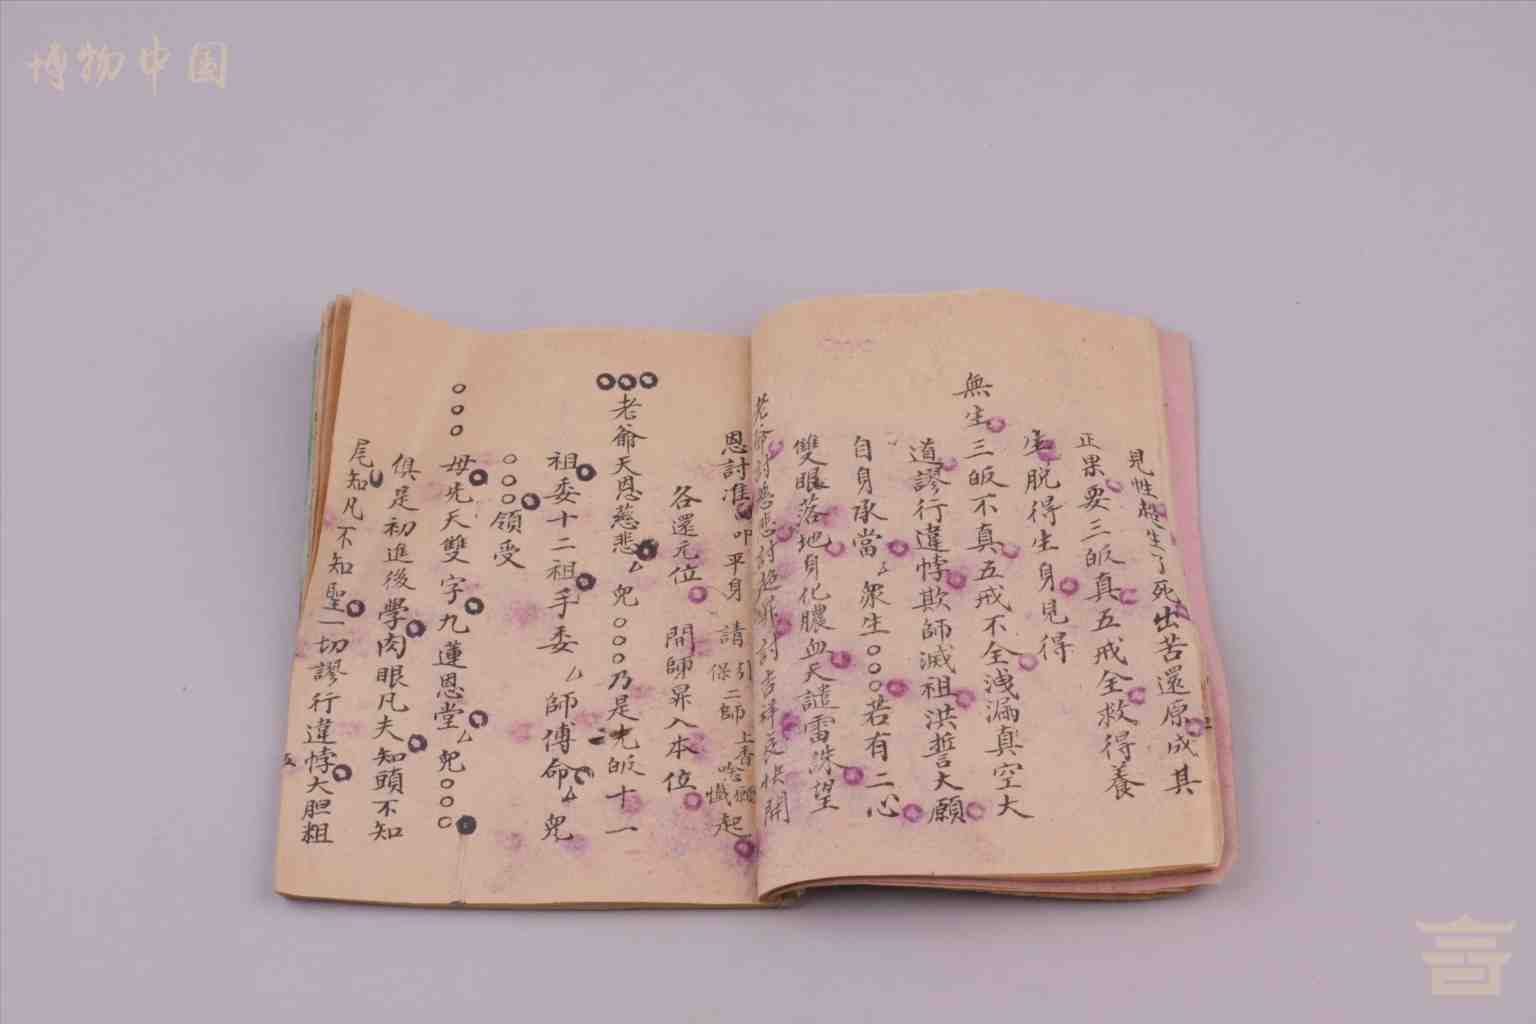 博物中国
見性超生了死出苦還原成其
正果要三皈真五戒全救得養
生脱得生身見得
無生三皈不真五戒不全洩漏真空大
道謬行違悖欺師滅祖洪誓大願
自身承當衆生○○○若有二心
雙眼落地身化膿血天譴雷誅望
老爺討慈悲討超
恩討准叩平身請引保二師上香起
各還元位間師昇入本位
○○○老爺天恩慈悲㕥皃○○○乃是九皈十一
祖委十二祖手委㕥師傅命㕥皃
○○○領受
○○○母先天雙字九蓮恩堂㕥皃○○○
俱是初進後學肉眼凡夫知頭不知
尾知凡不知聖一切謬行違悖大胆粗